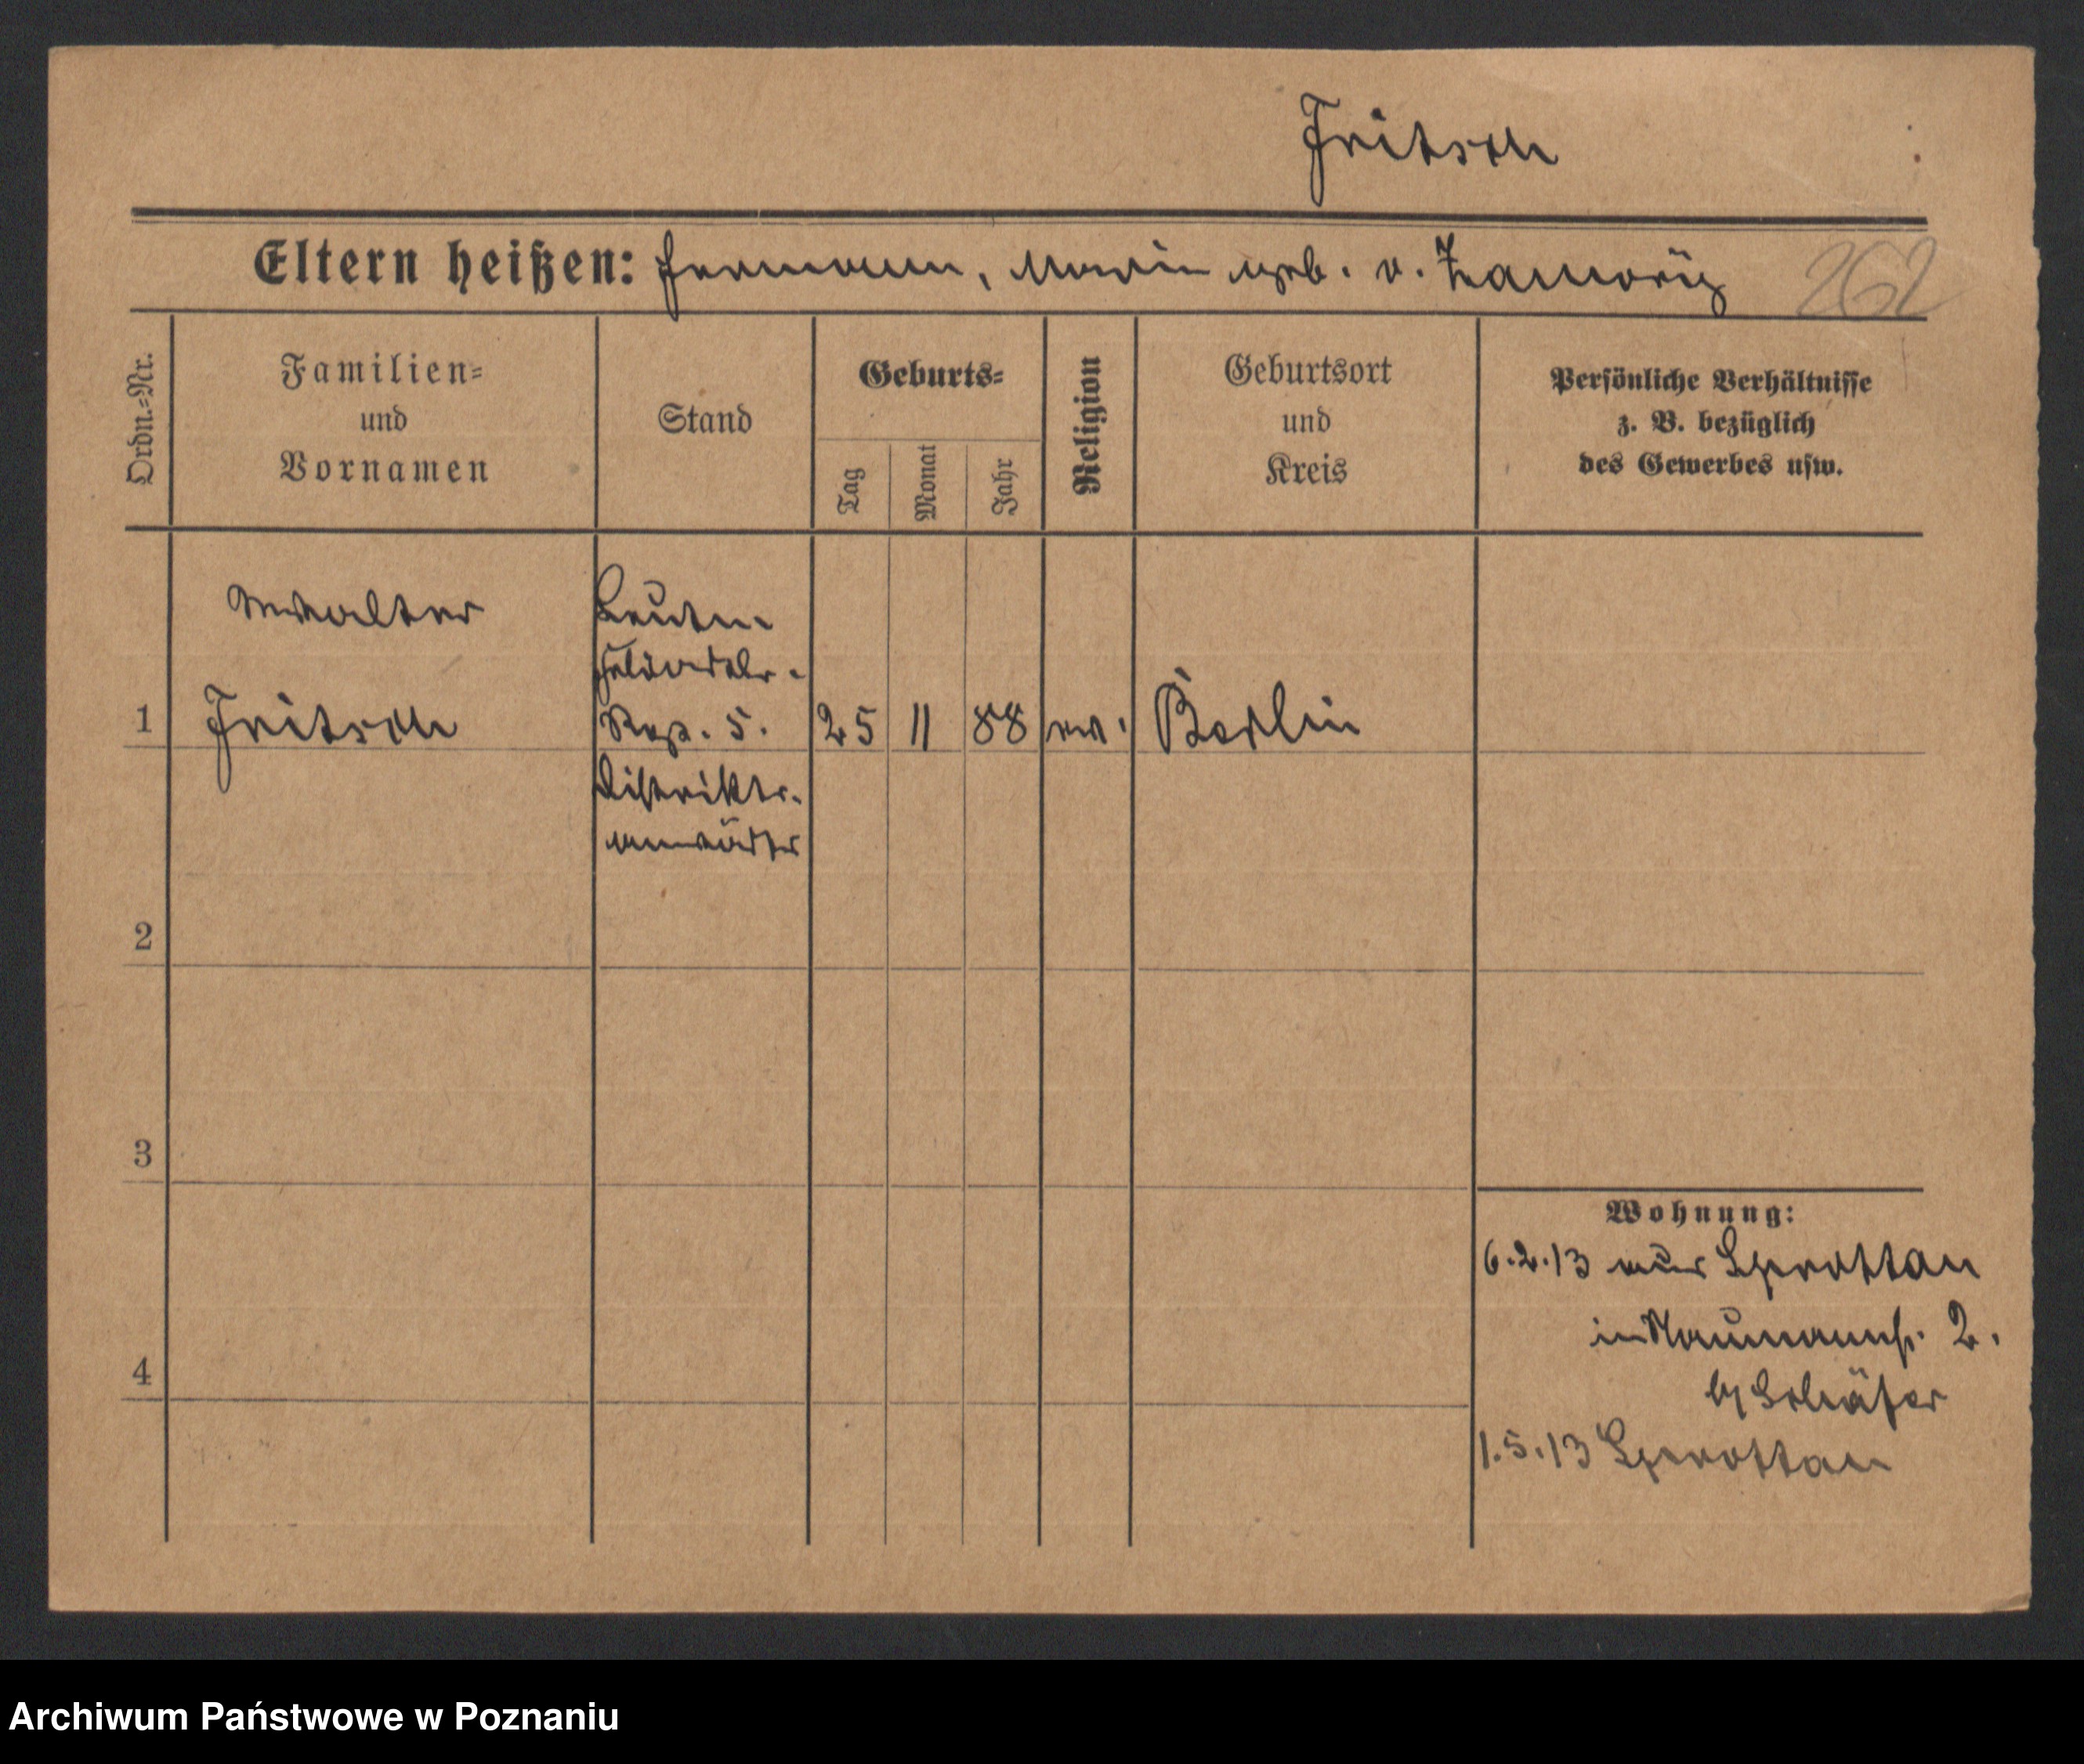 Fritsch
Eltern heißen: Hermann, Maria geb. v.
262
Ordn.=Nr.
Familien=
und
Vornamen
Stand
Geburts=
Tag
Monat
Jahr
Religion
Geburtsort
und
Kreis
Persönliche Verhältnisse
z. B. bezüglich
des Gewerbes usw.
Walter
Leutn.
Feldart.
1 Fritsch Reg. 5. 25 11 88 ev. Berlin
Distrikts-
anwärter
2
3
4
Wohnung:
6.2.13 aus Sprottau
in Naumannstr. 2.
b/ Schäfer
1.5.13 Sprottau
Archiwum Państwowe w Poznaniu